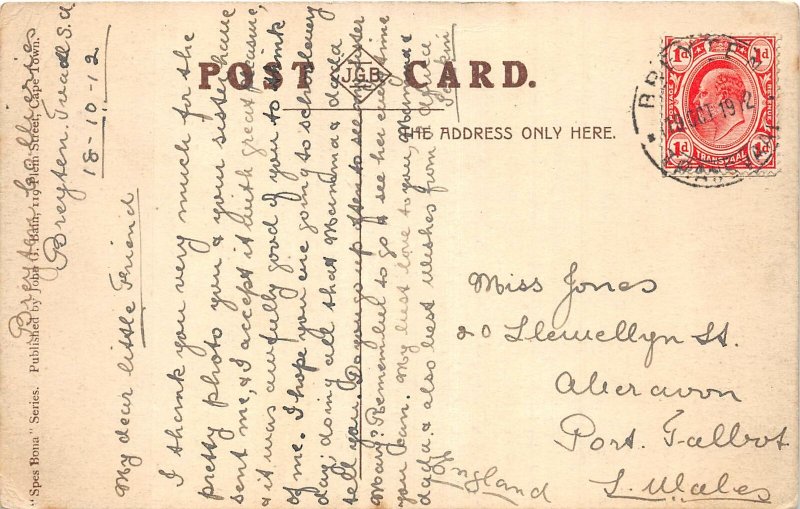 POST J.G.B CARD.
THE ADDRESS ONLY HERE.
"Spes Bona" Series. Published by John G. Bain, 119 Plein Street, Cape Town.
Breyten Collieries
Breyten. Tvaal S.A
18-10-12
My dear little Friend
I thank you very much for the
pretty photo you & your sister have
sent me, & I accept it with great pleasure,
& it was awfully good of you to think
of me. I hope you are going to school every
day, doing all that Mamma & dada
tell you. Do you go up often to see my sister
Mary? Remember to go & see her every time
you can. My best love to you, Mamma &
dada & also best wishes from Africa
England
Miss Jones
20 Llewellyn St.
Aberavon
Port. Talbot
S. Wales
1d 1d
1d 1d
TRANSVAAL
BREYTEN
19 OCT 1912
TRANSVAAL